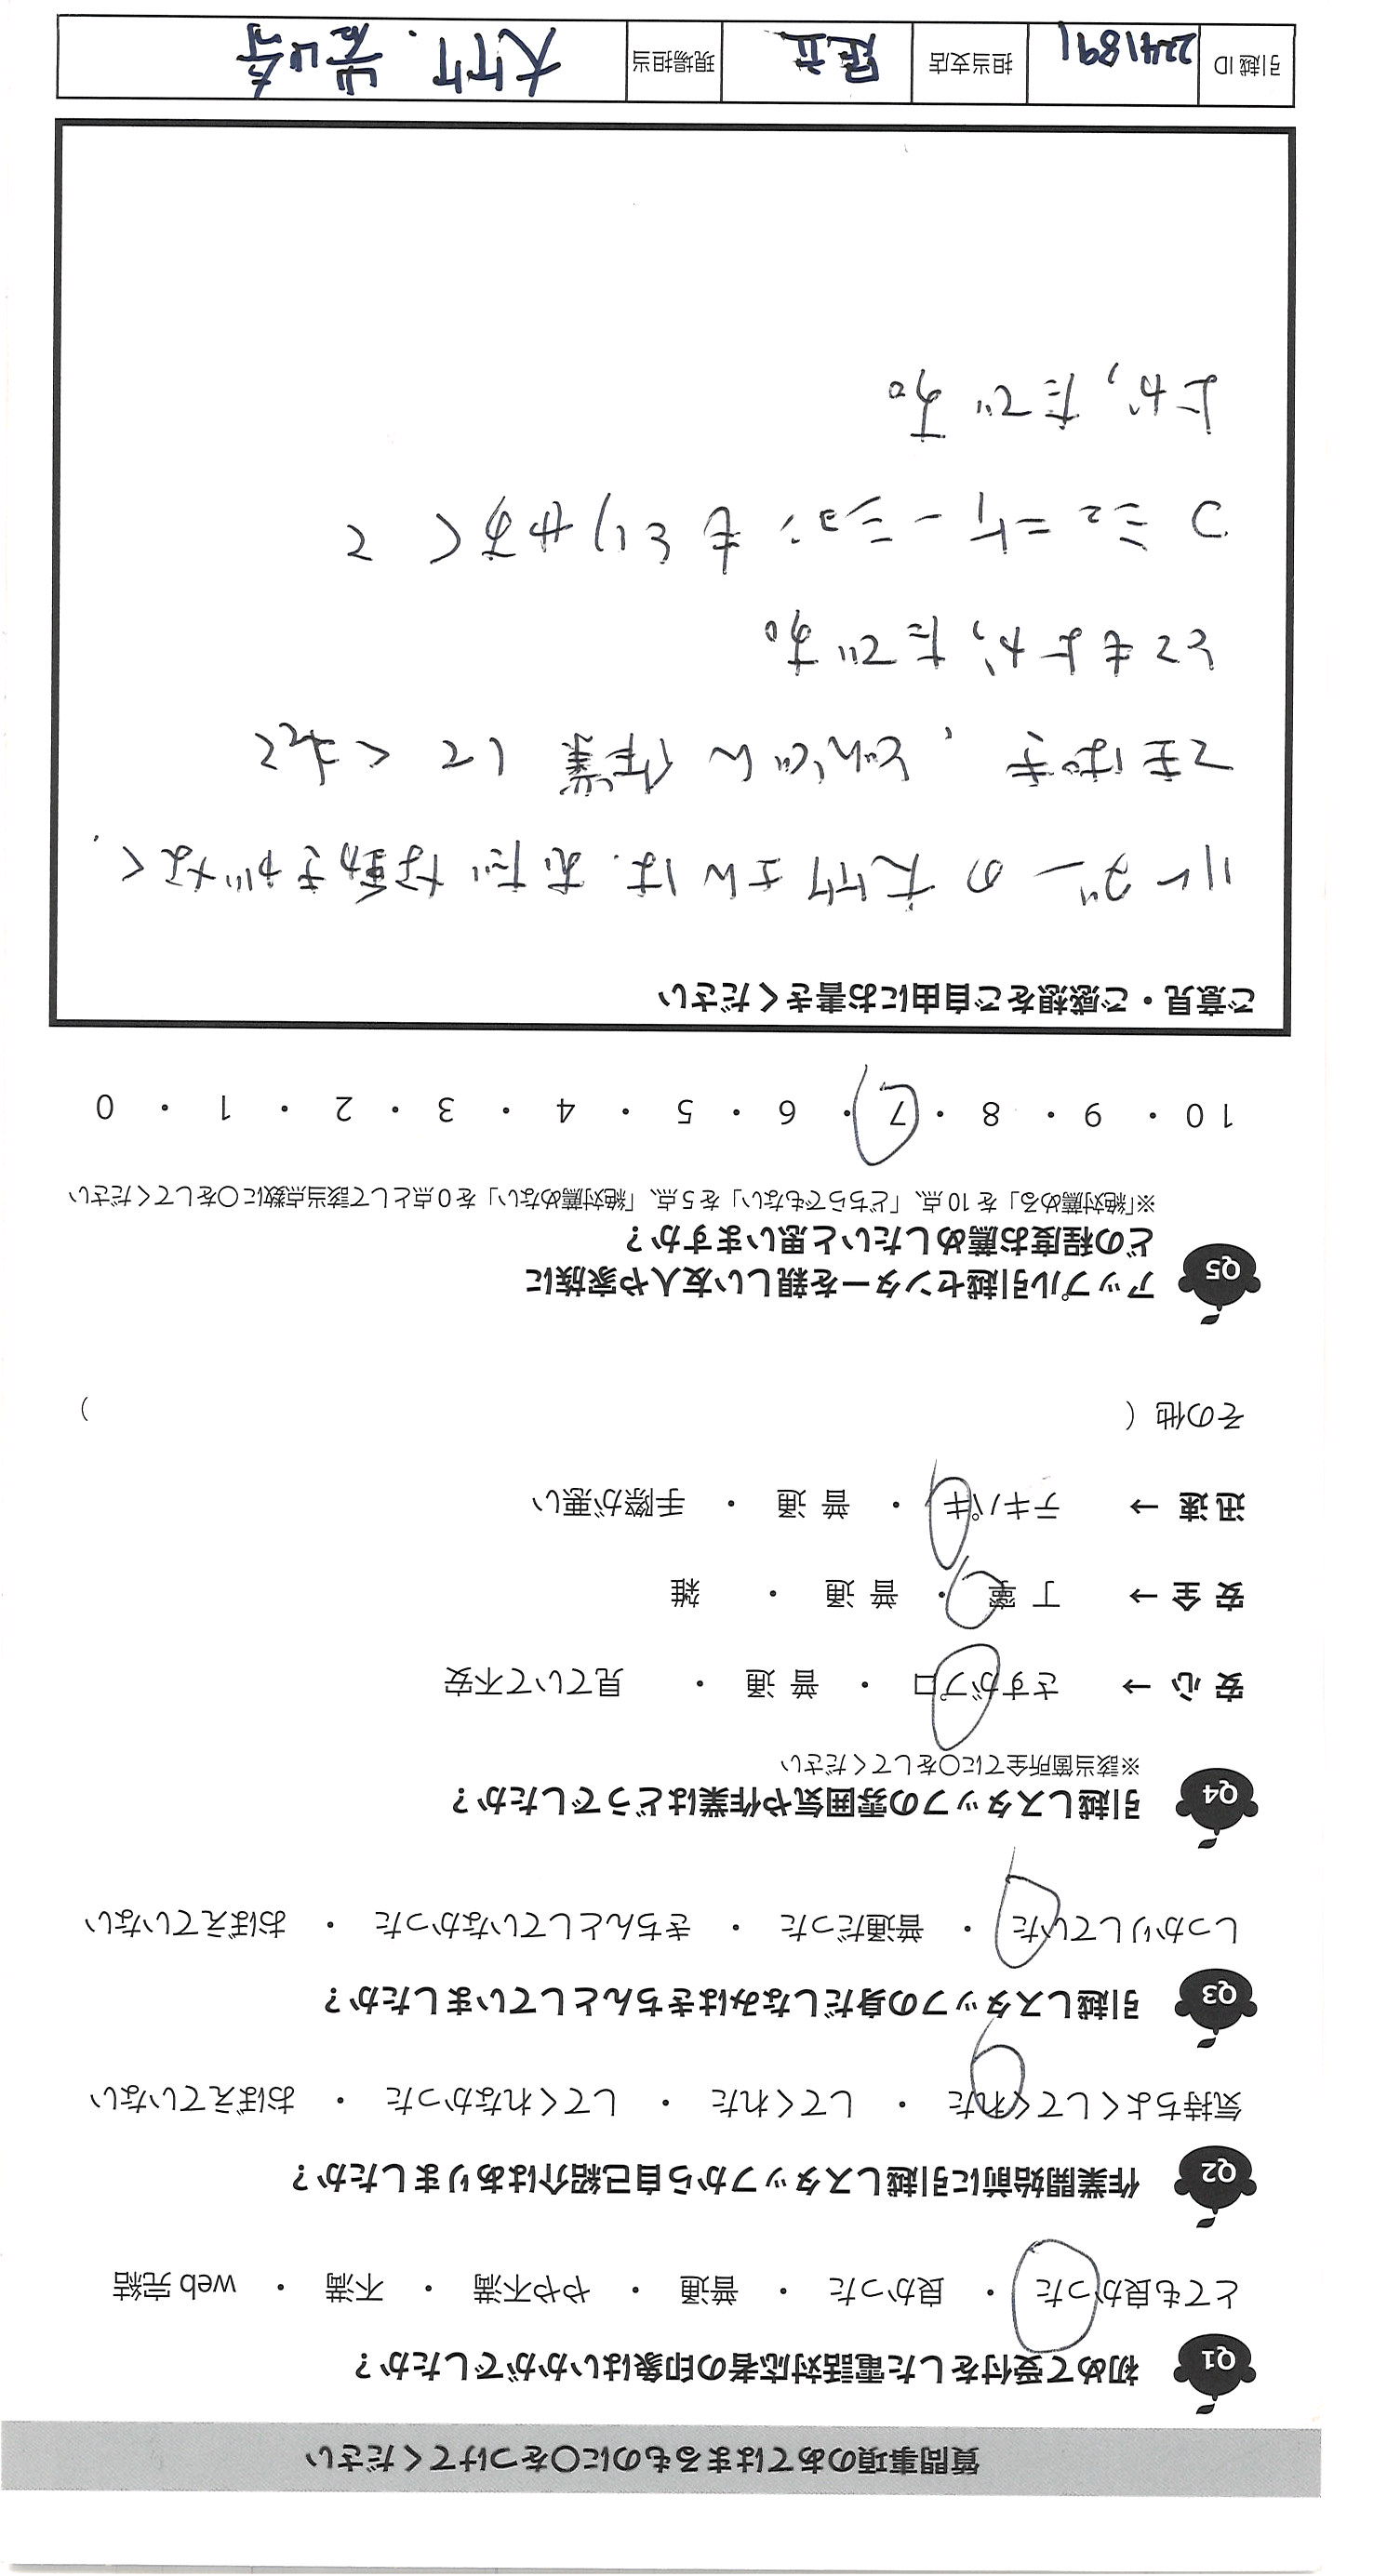 質問事項のあてはまるものに〇をつけてください
Q1 初めて受付をした電話対応者の印象はいかがでしたか？
とても良かった ・ 良かった ・ 普通 ・ やや不満 ・ 不満 ・ web 完結
Q2 作業開始前に引越しスタッフから自己紹介はありましたか？
気持ちよくしてくれた ・ してくれた ・ してくれなかった ・ おぼえていない
Q3 引越しスタッフの身だしなみはきちんとしていましたか？
しっかりしていた ・ 普通だった ・ きちんとしていなかった ・ おぼえていない
Q4 引越しスタッフの雰囲気や作業はどうでしたか？
※該当箇所全てに〇をしてください
安 心 → さすがプロ ・ 普 通 ・ 見ていて不安
安 全 → 丁 寧 ・ 普 通 ・ 雑
迅 速 → テキパキ ・ 普 通 ・ 手際が悪い
その他（ ）
Q5 アップル引越センターを親しい友人や家族に
どの程度お薦めしたいと思いますか？
※「絶対薦める」を 10 点、「どちらでもない」を 5 点、「絶対薦めない」を 0 点として該当点数に〇をしてください
10 ・ 9 ・ 8 ・ 7 ・ 6 ・ 5 ・ 4 ・ 3 ・ 2 ・ 1 ・ 0
ご意見・ご感想をご自由にお書きください
リーダーの大竹さんは、むだな動きがなく、
てきぱき、どんどん作業してくれて
とてもよかったです。
コミュニケーションもとりやすくて
よかったです。
引越 ID 2241891 担当支店 足立 現場担当 大竹・